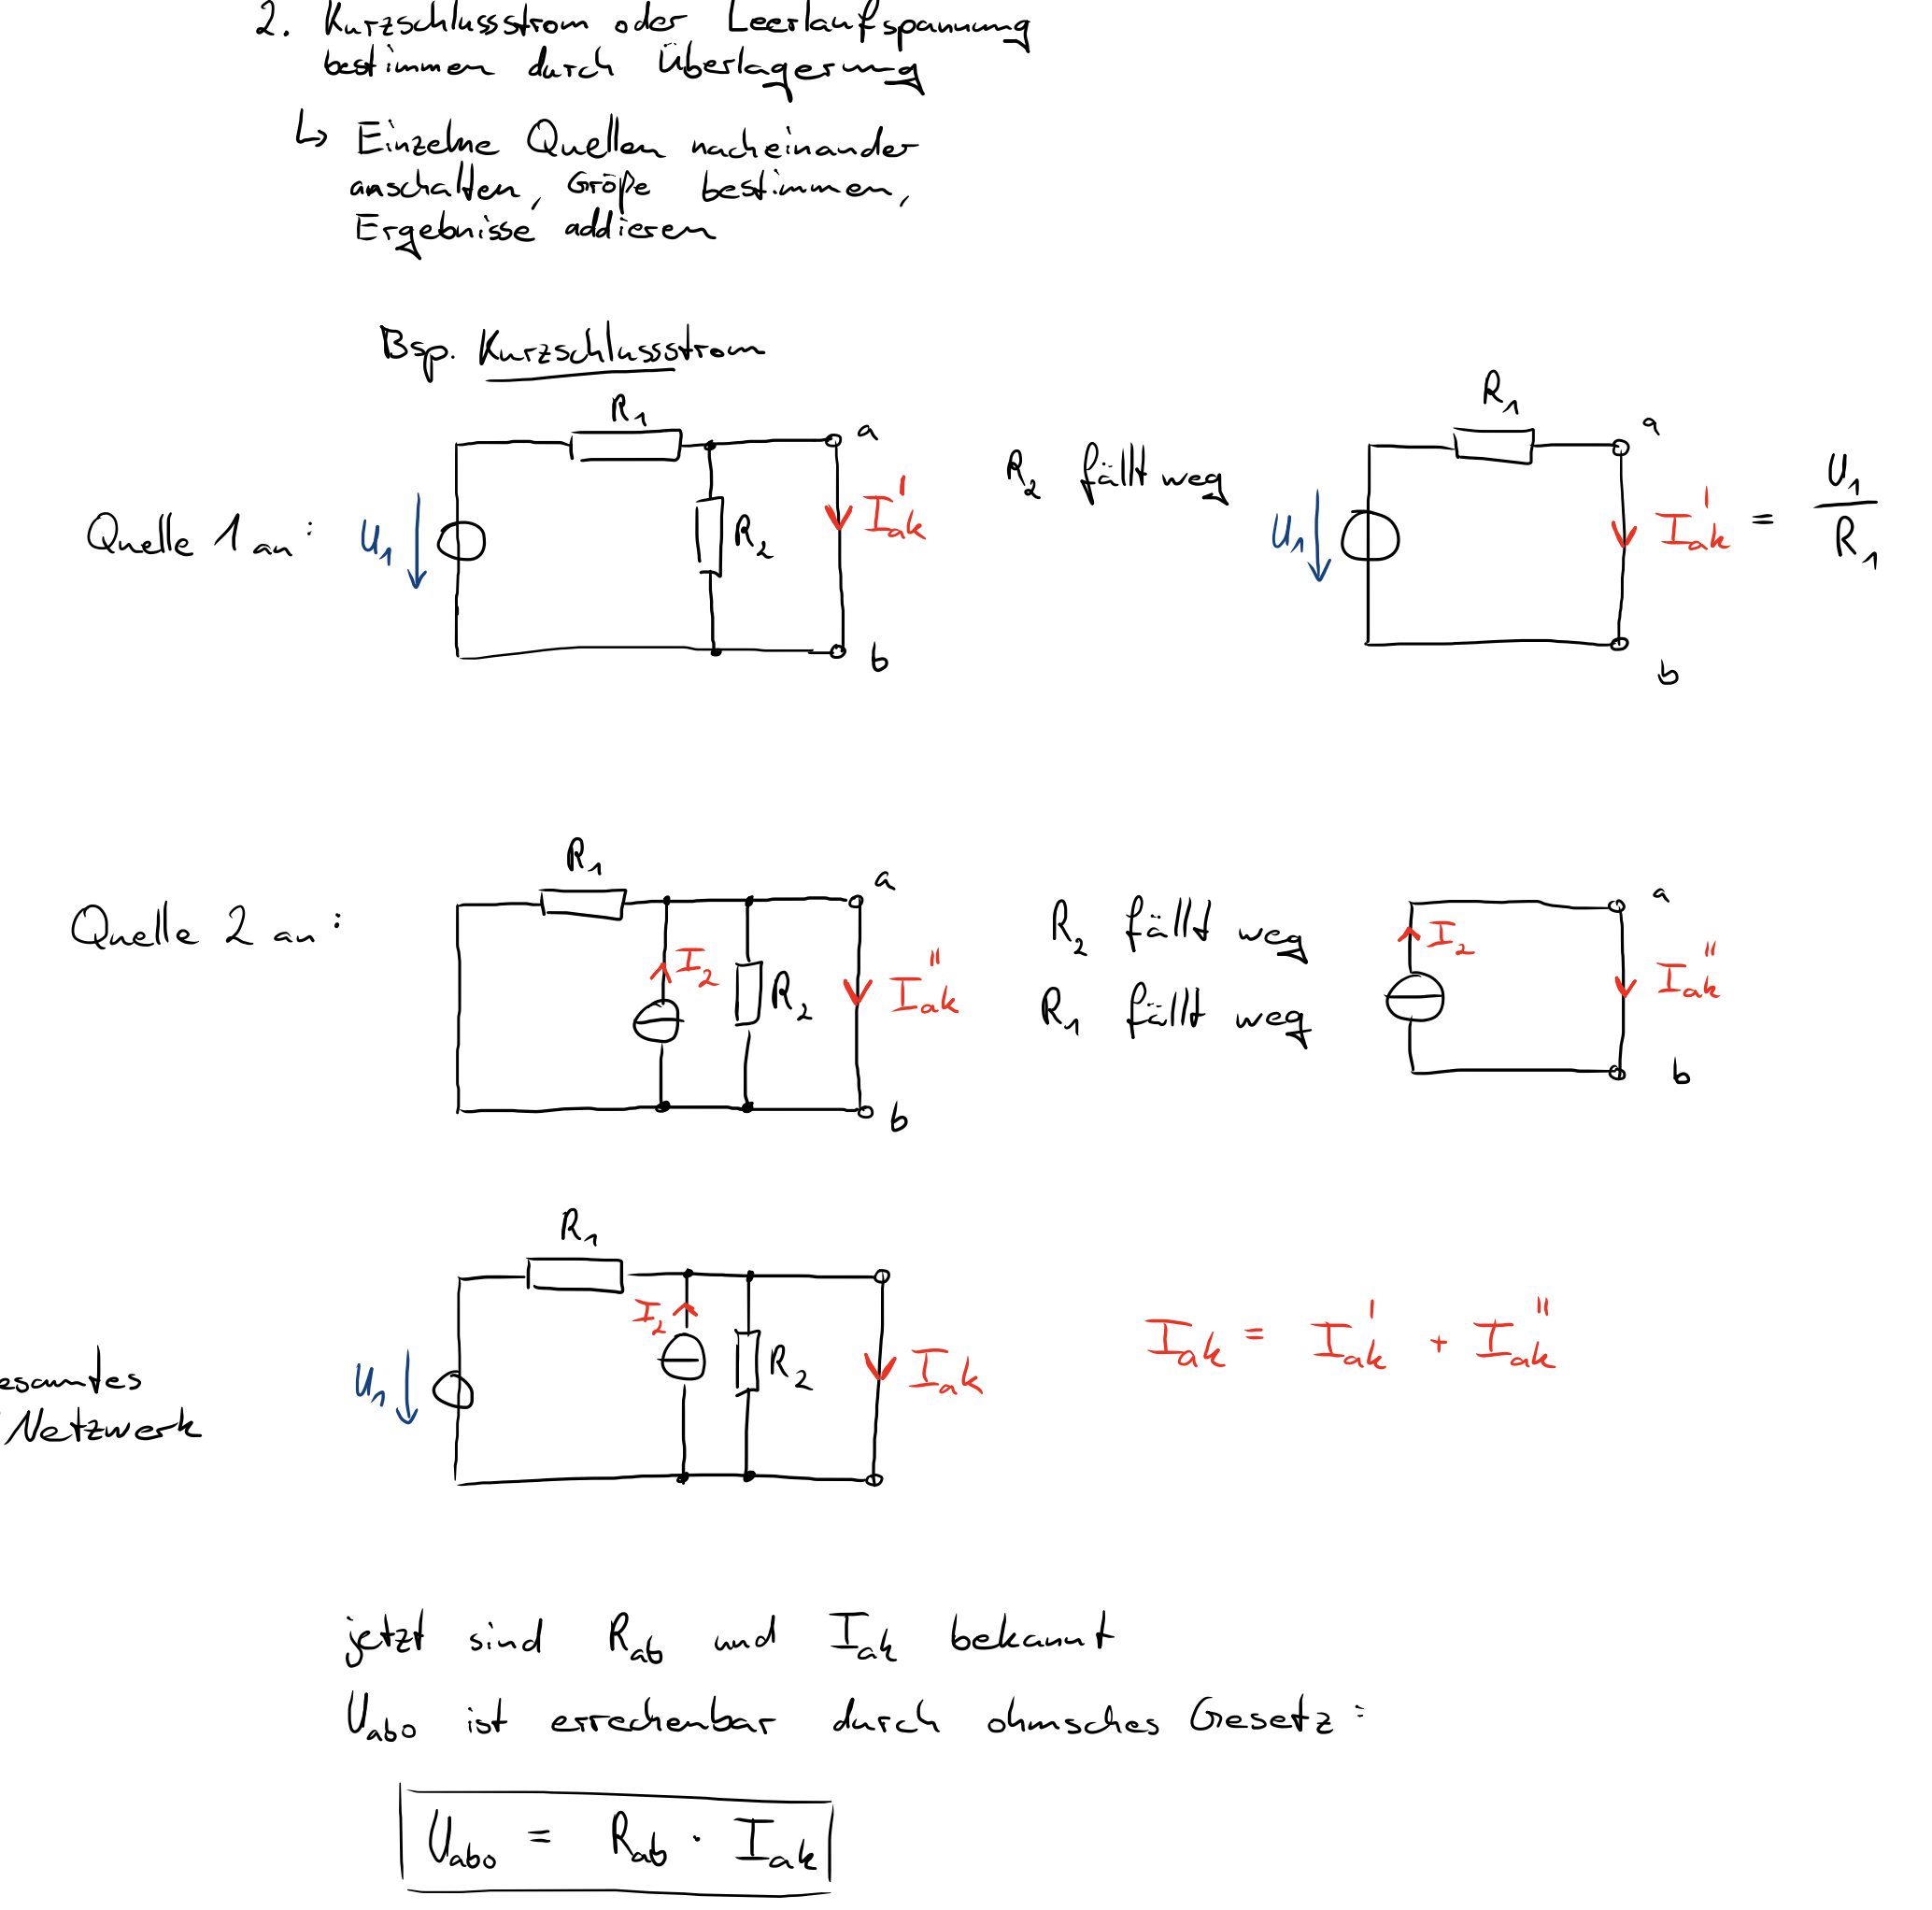 2. Kurzschlussstrom oder Leerlaufspannung
bestimmen durch Überlagerung
↳ Einzelne Quellen nacheinander
anschalten, Größe bestimmen,
Ergebnisse addieren
Bsp. Kurzschlussstrom
Quelle 1 an:
U₁
R₁
R₂
a
b
I'ak
R₂ fällt weg
U₁
R₁
a
b
I'ak = U₁/R₁
Quelle 2 an:
R₁
I₂
R₂
a
b
I''ak
R₂ fällt weg
R₁ fällt weg
I₂
a
b
I''ak
esamtes
Netzwerk
U₁
R₁
I₂
R₂
Iak
Iak = I'ak + I''ak
jetzt sind Rab und Iak bekannt
Uabo ist errechenbar durch ohmsches Gesetz:
Uabo = Rab · Iak